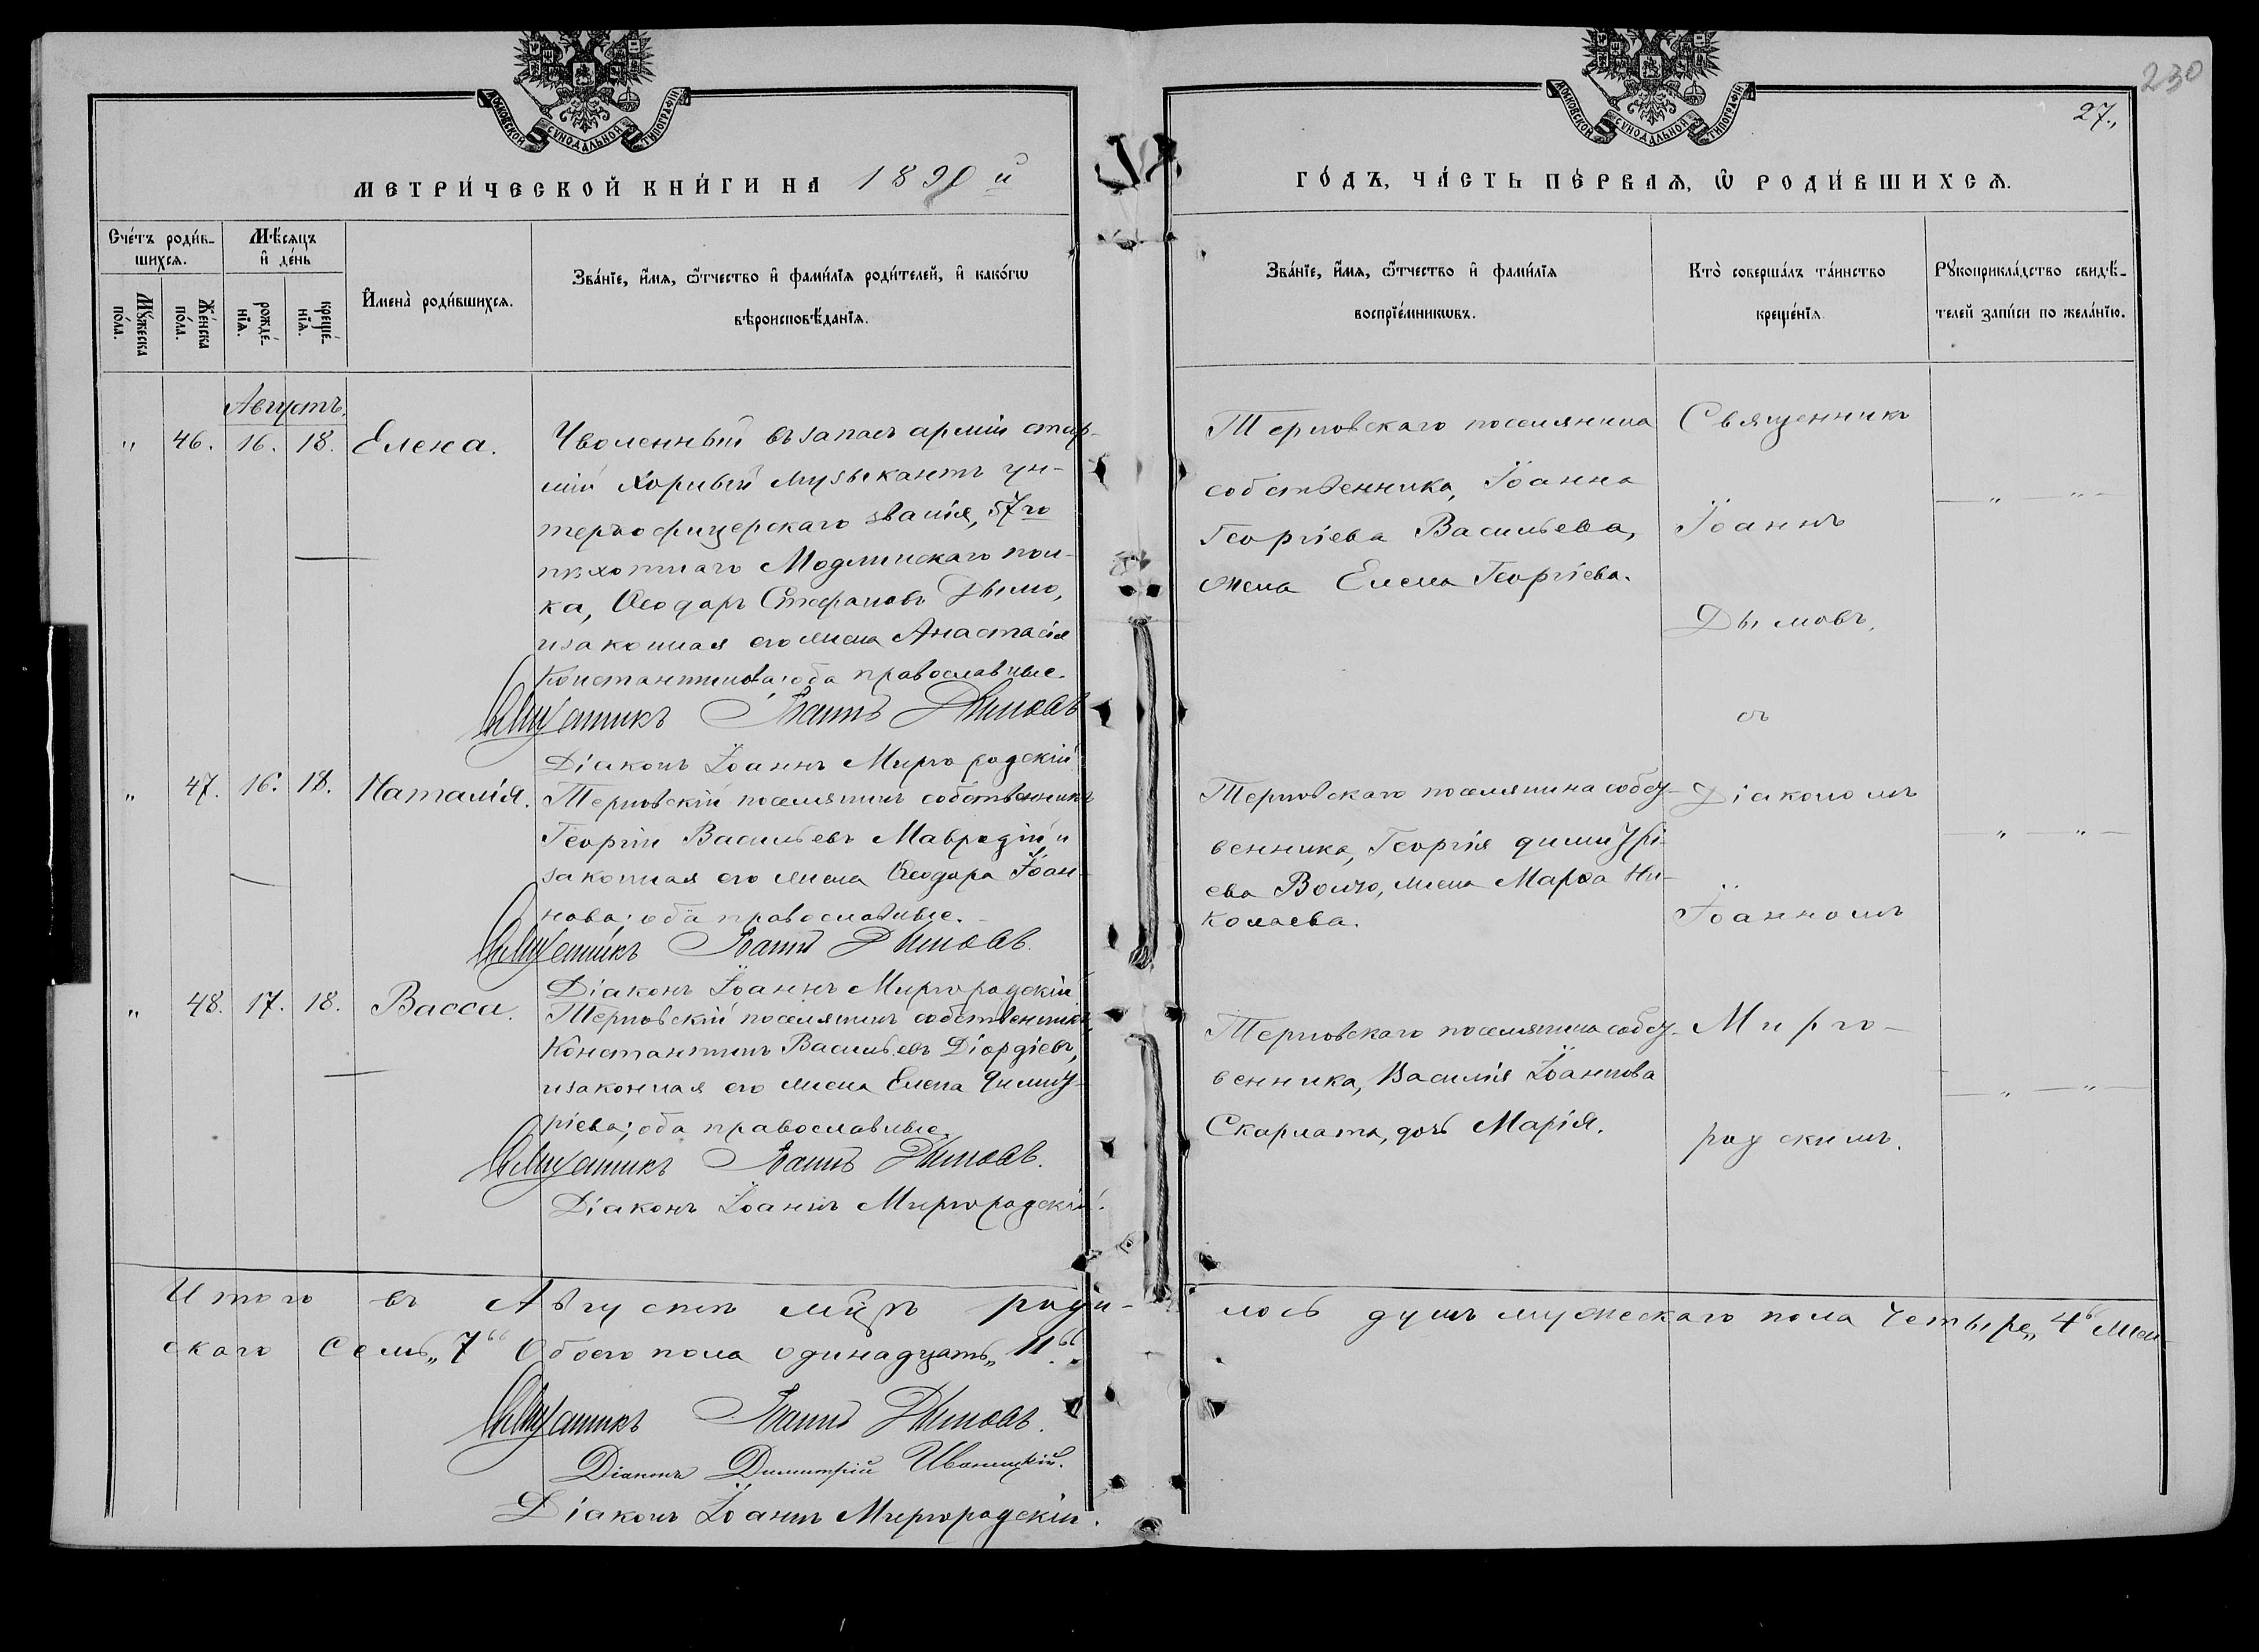 230
27.,
МОСКОВСКОЙ СѴНОДАЛЬНОЙ ТИПОГРАФІИ
МОСКОВСКОЙ СѴНОДАЛЬНОЙ ТИПОГРАФІИ
МЕТРИ́ЧЕСКОЙ КНИ́ГИ НА 1890й
ГО́ДЪ, ЧА́СТЬ ПЕ́РВАѦ, Ѡ РОДИ́ВШИХСѦ.
Сче́тъ роди́в-
шихсѧ.
Мꙋ́жеска по́ла.
Же́нска по́ла.
Мѣ́сѧцъ
и҆ де́нь
рожде́-
нїѧ.
креще́-
нїѧ.
И҆мена̀ роди́вшихсѧ.
Зва́нїе, и҆́мѧ, ѻ҆́тчество и҆ фами́лїѧ роди́телей, и҆ како́гѡ
вѣроисповѣ́данїѧ.
Зва́нїе, и҆́мѧ, ѻ҆́тчество и҆ фами́лїѧ
воспрїе́мникѡвъ.
Кто̀ соверша́лъ та́инство
креще́нїѧ
Рꙋкоприкла́дство свидѣ́-
телей за́писи по жела́нїю.
Августъ.
" 46. 16. 18. Елена.
Уволенный въ запасъ арміи стар-
шій Хорный музыкантъ ун-
теръ офицерскаго званія, 57го
пѣхотнаго Модлинскаго пол-
ка, Ѳеодоръ Стефановъ Дымо,
и законная его жена Анастасія
Константинова; оба православные.
Священникъ Іоаннъ Дымовъ
Діаконъ Іоаннъ Миргородскій
Терновскаго поселянина
собственника, Іоанна
Георгіева Васильева,
жена Елена Георгіева.
Священникъ
Іоаннъ
Дымовъ,
съ
Діакономъ
Іоанномъ
Мирго-
родскимъ.
— " — " —
" 47. 16. 18. Наталія.
Терновскій поселянинъ собственникъ
Георгій Васильевъ Мавродій, и
законная его жена Ѳеодора Іоан-
нова; оба православные.
Священникъ Іоаннъ Дымовъ.
Діаконъ Іоаннъ Миргородскій
Терновскаго поселянина собст-
венника, Георгія Димитрі-
ева Волчо, жена Марѳа Ни-
колаева.
— " — " —
" 48. 17. 18. Васса.
Терновскій поселянинъ собственникъ,
Константинъ Васильевъ Діордіевъ,
и законная его жена Елена Димит-
ріева; оба православные.
Священникъ Іоаннъ Дымовъ.
Діаконъ Іоаннъ Миргородскій.
Терновскаго поселянина собст-
венника, Василія Іоаннова
Скарлата, дочь Марія.
— " — " —
Итого въ Августѣ мцѣ роди- лось душъ мужескаго пола четыре „4“ жен-
скаго Семь „7“ Обоего пола одинадцать „11“.
Священникъ Іоаннъ Дымовъ.
Діаконъ Димитрій Иваницкій.
Діаконъ Іоаннъ Миргородскій.